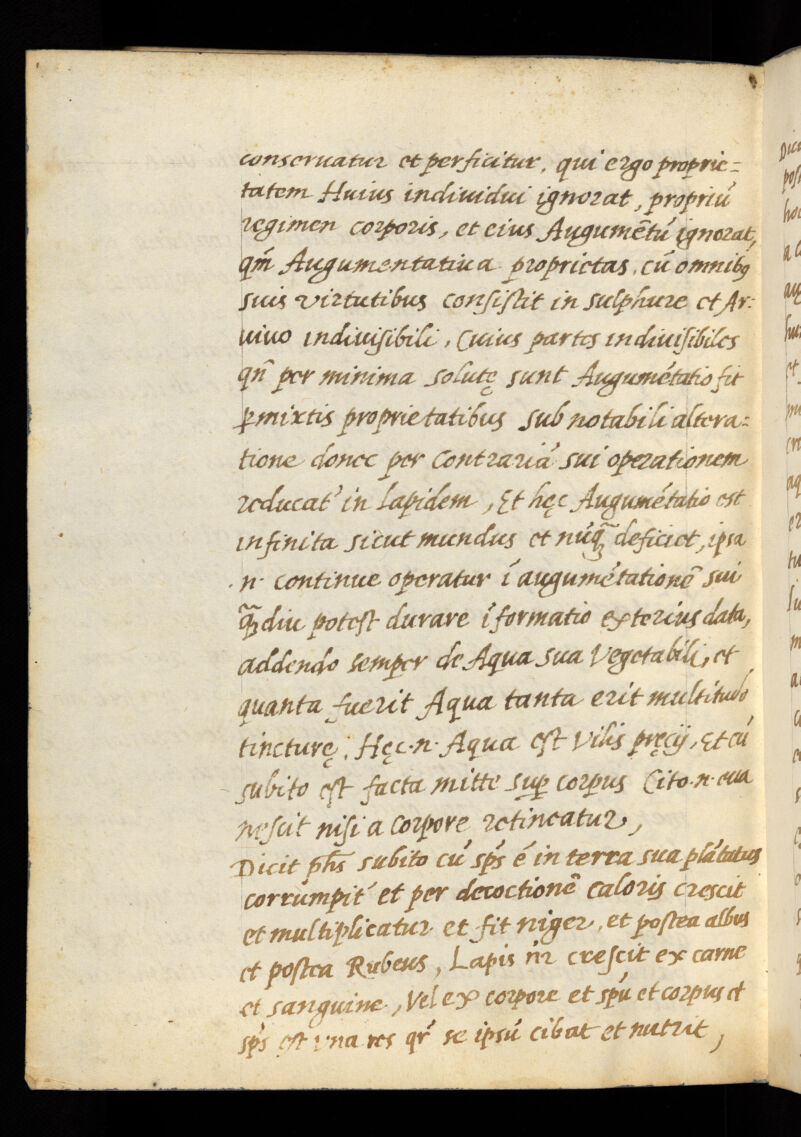 conseruatur et perficitur, qui ergo proprie=
tatem Huius indiuidui ignorat, propriũ
regimen corporis, et eius Augumẽtũ ignorat,
qm̃ Augumentatiua proprietas, cũ omnibꝰ
suis virtutibus consistit in sulphure et Ar:
uiuo indiuisibili, Cuius partes indiuisibiles
qñ per minima solutę sunt Augumẽtatio fit
ꝑmixtis proprietatibus sub notabili altera=
tione donec per Contrariã sui operationem
reducat᷑ in lapidem, Et hęc Augumẽtatio est
infinita sicut mundus et nũq̃ deficiet, ipsa
.n. continue operatur ĩ augumẽtationẽ sui
q̃diu potest durare ĩformatio exterius data,
addendo semper de Aqua sua Vegetabili, et
quanta fuerit Aqua tanta erit multitudo
tincturę. Hęc .n. Aqua est Vilis pręcij, Et cũ
subito est facta mitte suꝑ corpus Cito .n. eua
nescit nisi a Corpore retineatur,
Dicit ph̃s subito cũ sp̃s ẽ in terra sua plãtatus
corrumpit᷑ et per decoctionẽ caloris crescit
et multiplicatur et fit niger, et postea albus
et postea Rubeus, Lapis nr̃ crescit ex carne
et sanguine, Vel ex corpore et sp̃u et corpus et
sp̃s est vna res qr̃ se ipsũ cibat et nutrit,
Dici